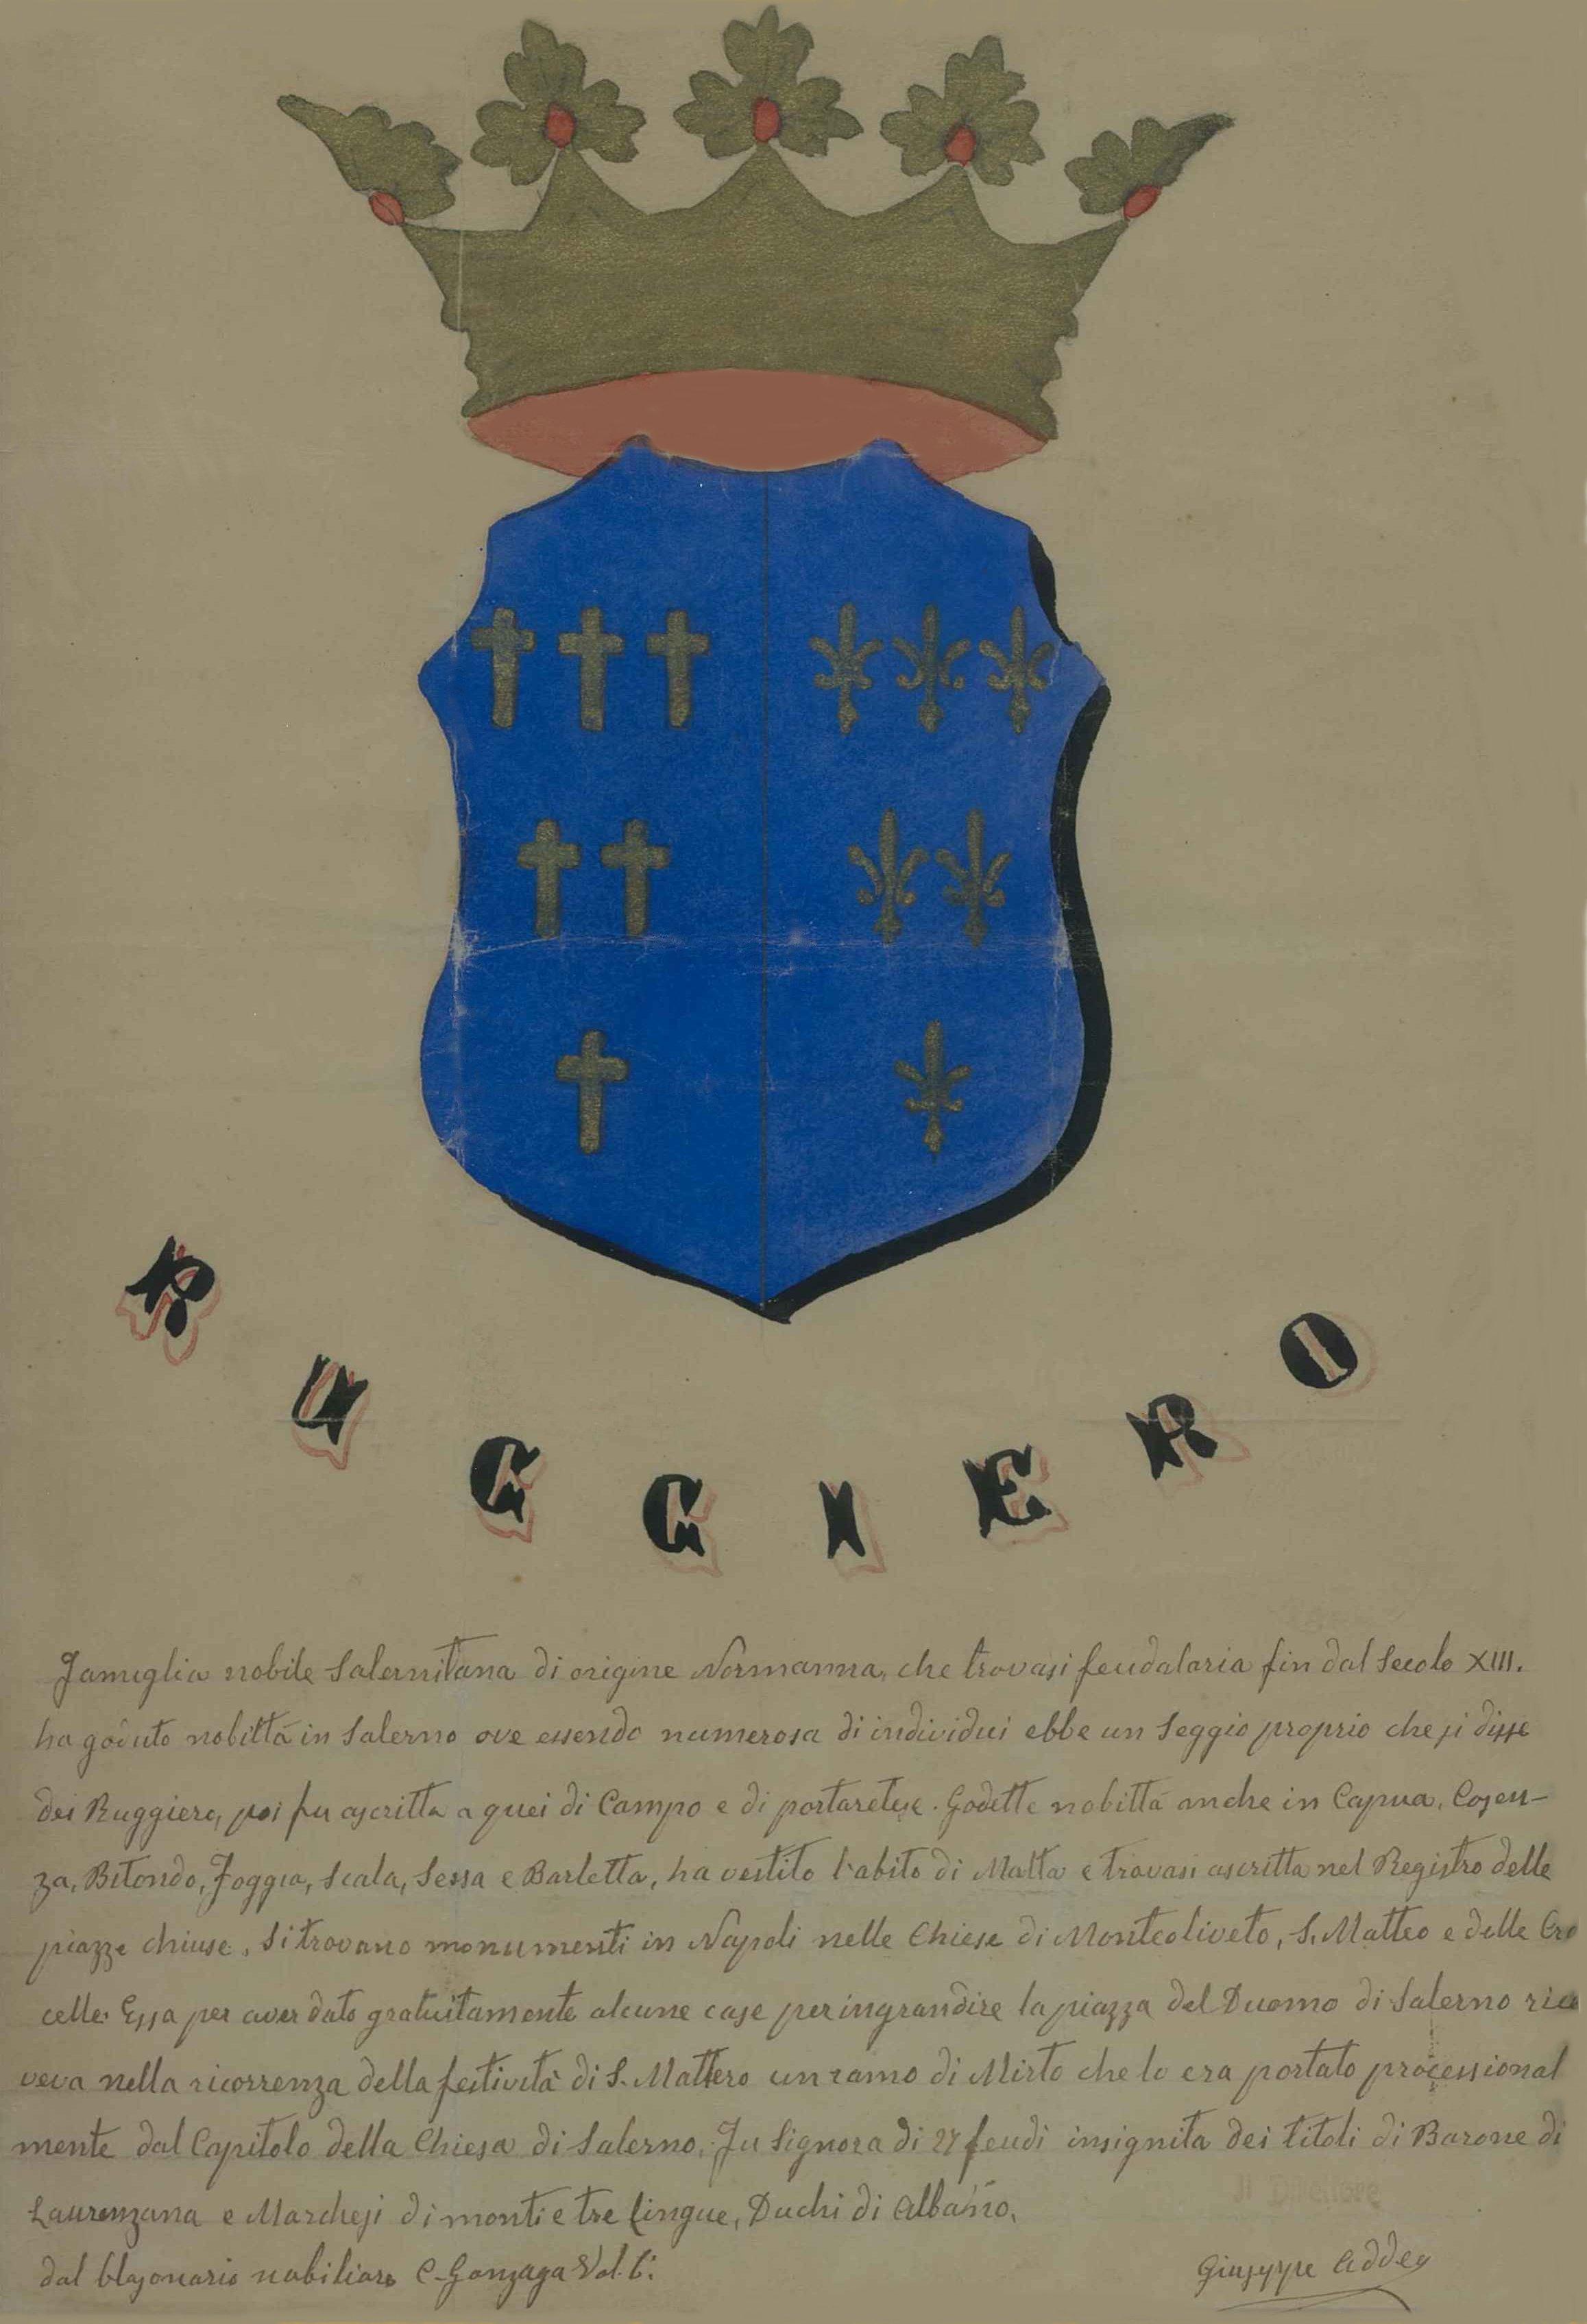 RUGGIERO
Famiglia nobile Salernitana di origine Normanna, che trovasi feudataria fin dal Secolo XIII.
ha goduto nobiltá in Salerno ove essendo numerosa di individui ebbe un Seggio proprio che si disse
dei Ruggiero, poi fu ascritta a quei di Campo e di portaretese. Godette nobiltá anche in Capua, Cosen-
za, Bitondo, Foggia, Scala, Sessa e Barletta, ha vestito l'abito di Malta e trovasi ascritta nel Registro delle
piazze chiuse. Si trovano monumenti in Napoli nelle Chiese di Monteoliveto, S. Matteo e delle Cro
celle. Essa per aver dato gratuitamente alcune case per ingrandire la piazza del Duomo di Salerno rice
veva nella ricorrenza della festivitá di S. Matteo un ramo di Mirto che le era portato processional
mente dal Capitolo della Chiesa di Salerno. Fu Signora di 27 feudi insignita dei titoli di Barone di
Laurenzana e Marchesi di monti e tre lingue, Duchi di Albano.
Il Direttore
dal blasonario nobiliare C. Gonzaga Vol. 6.
Giuseppe Addeo